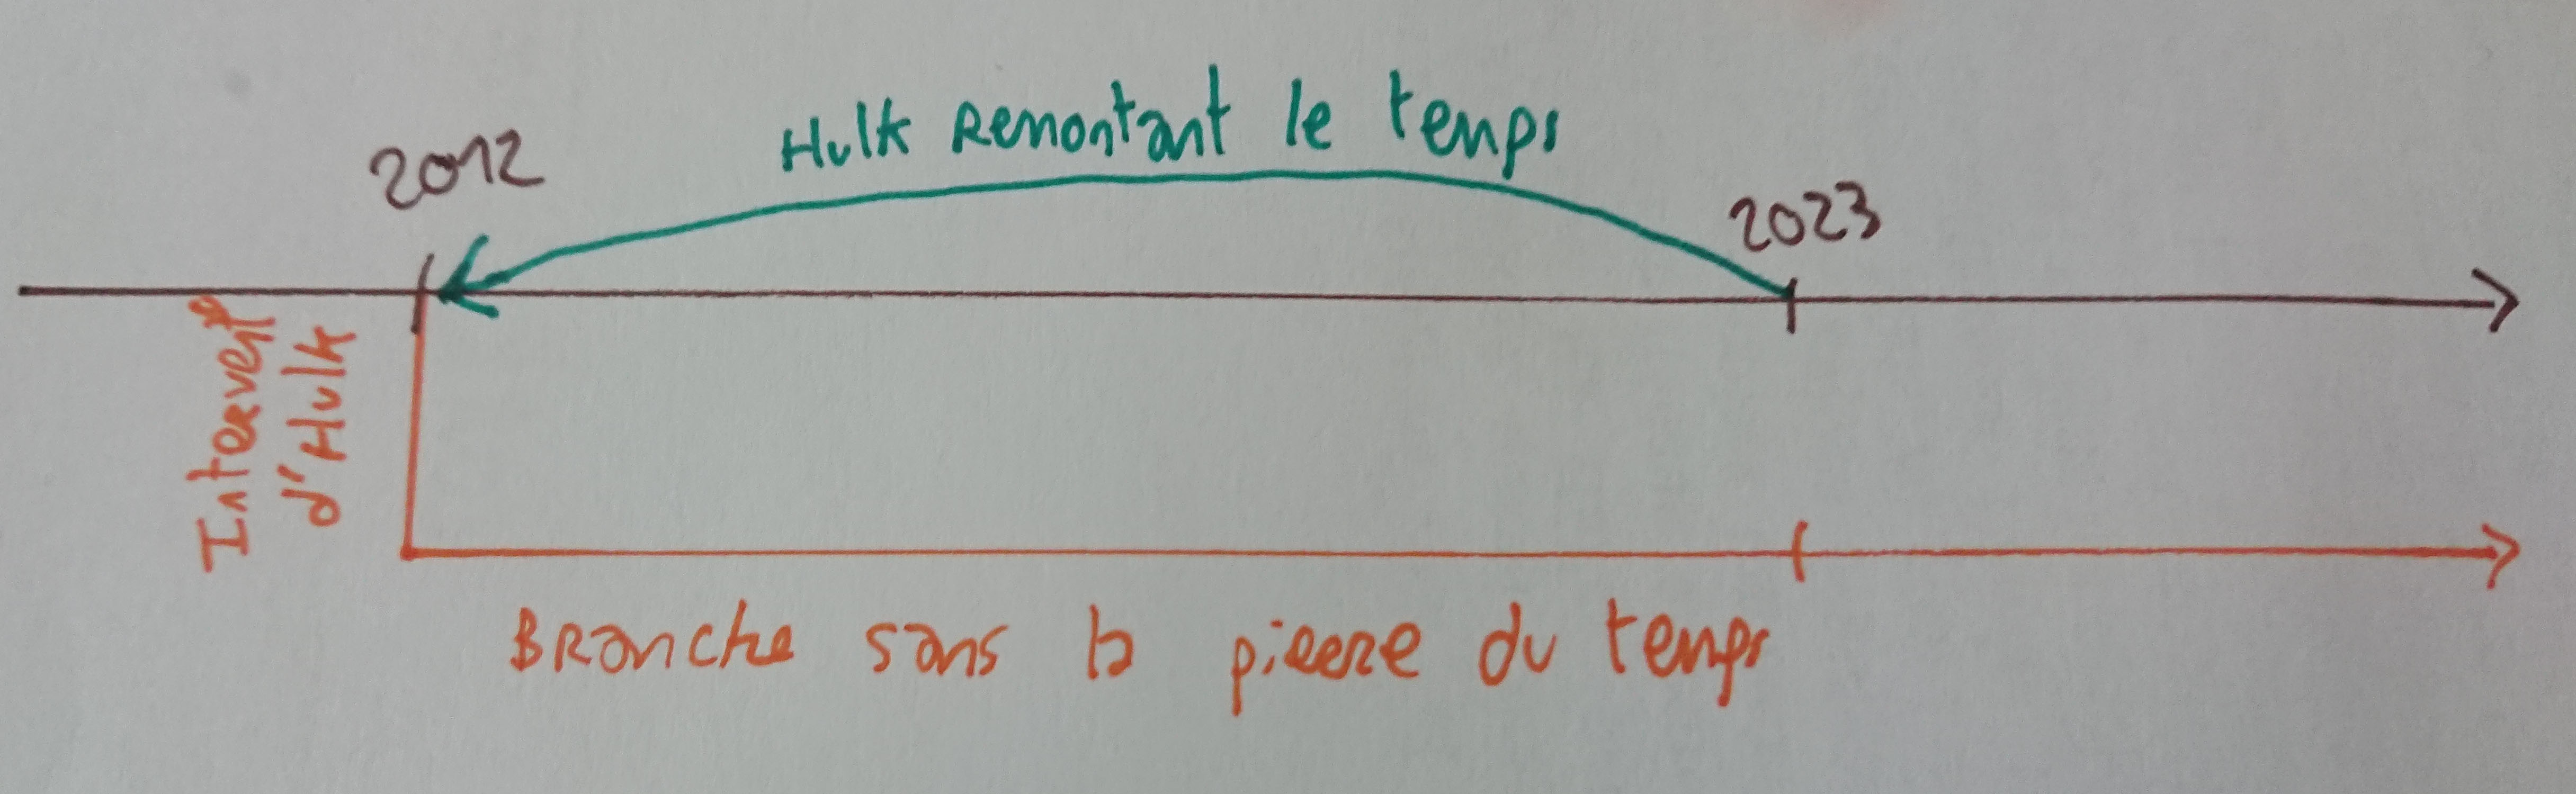 Hulk Remontant le temps
2012
2023
Intervent°
d'Hulk
Branche sans la pierre du temps